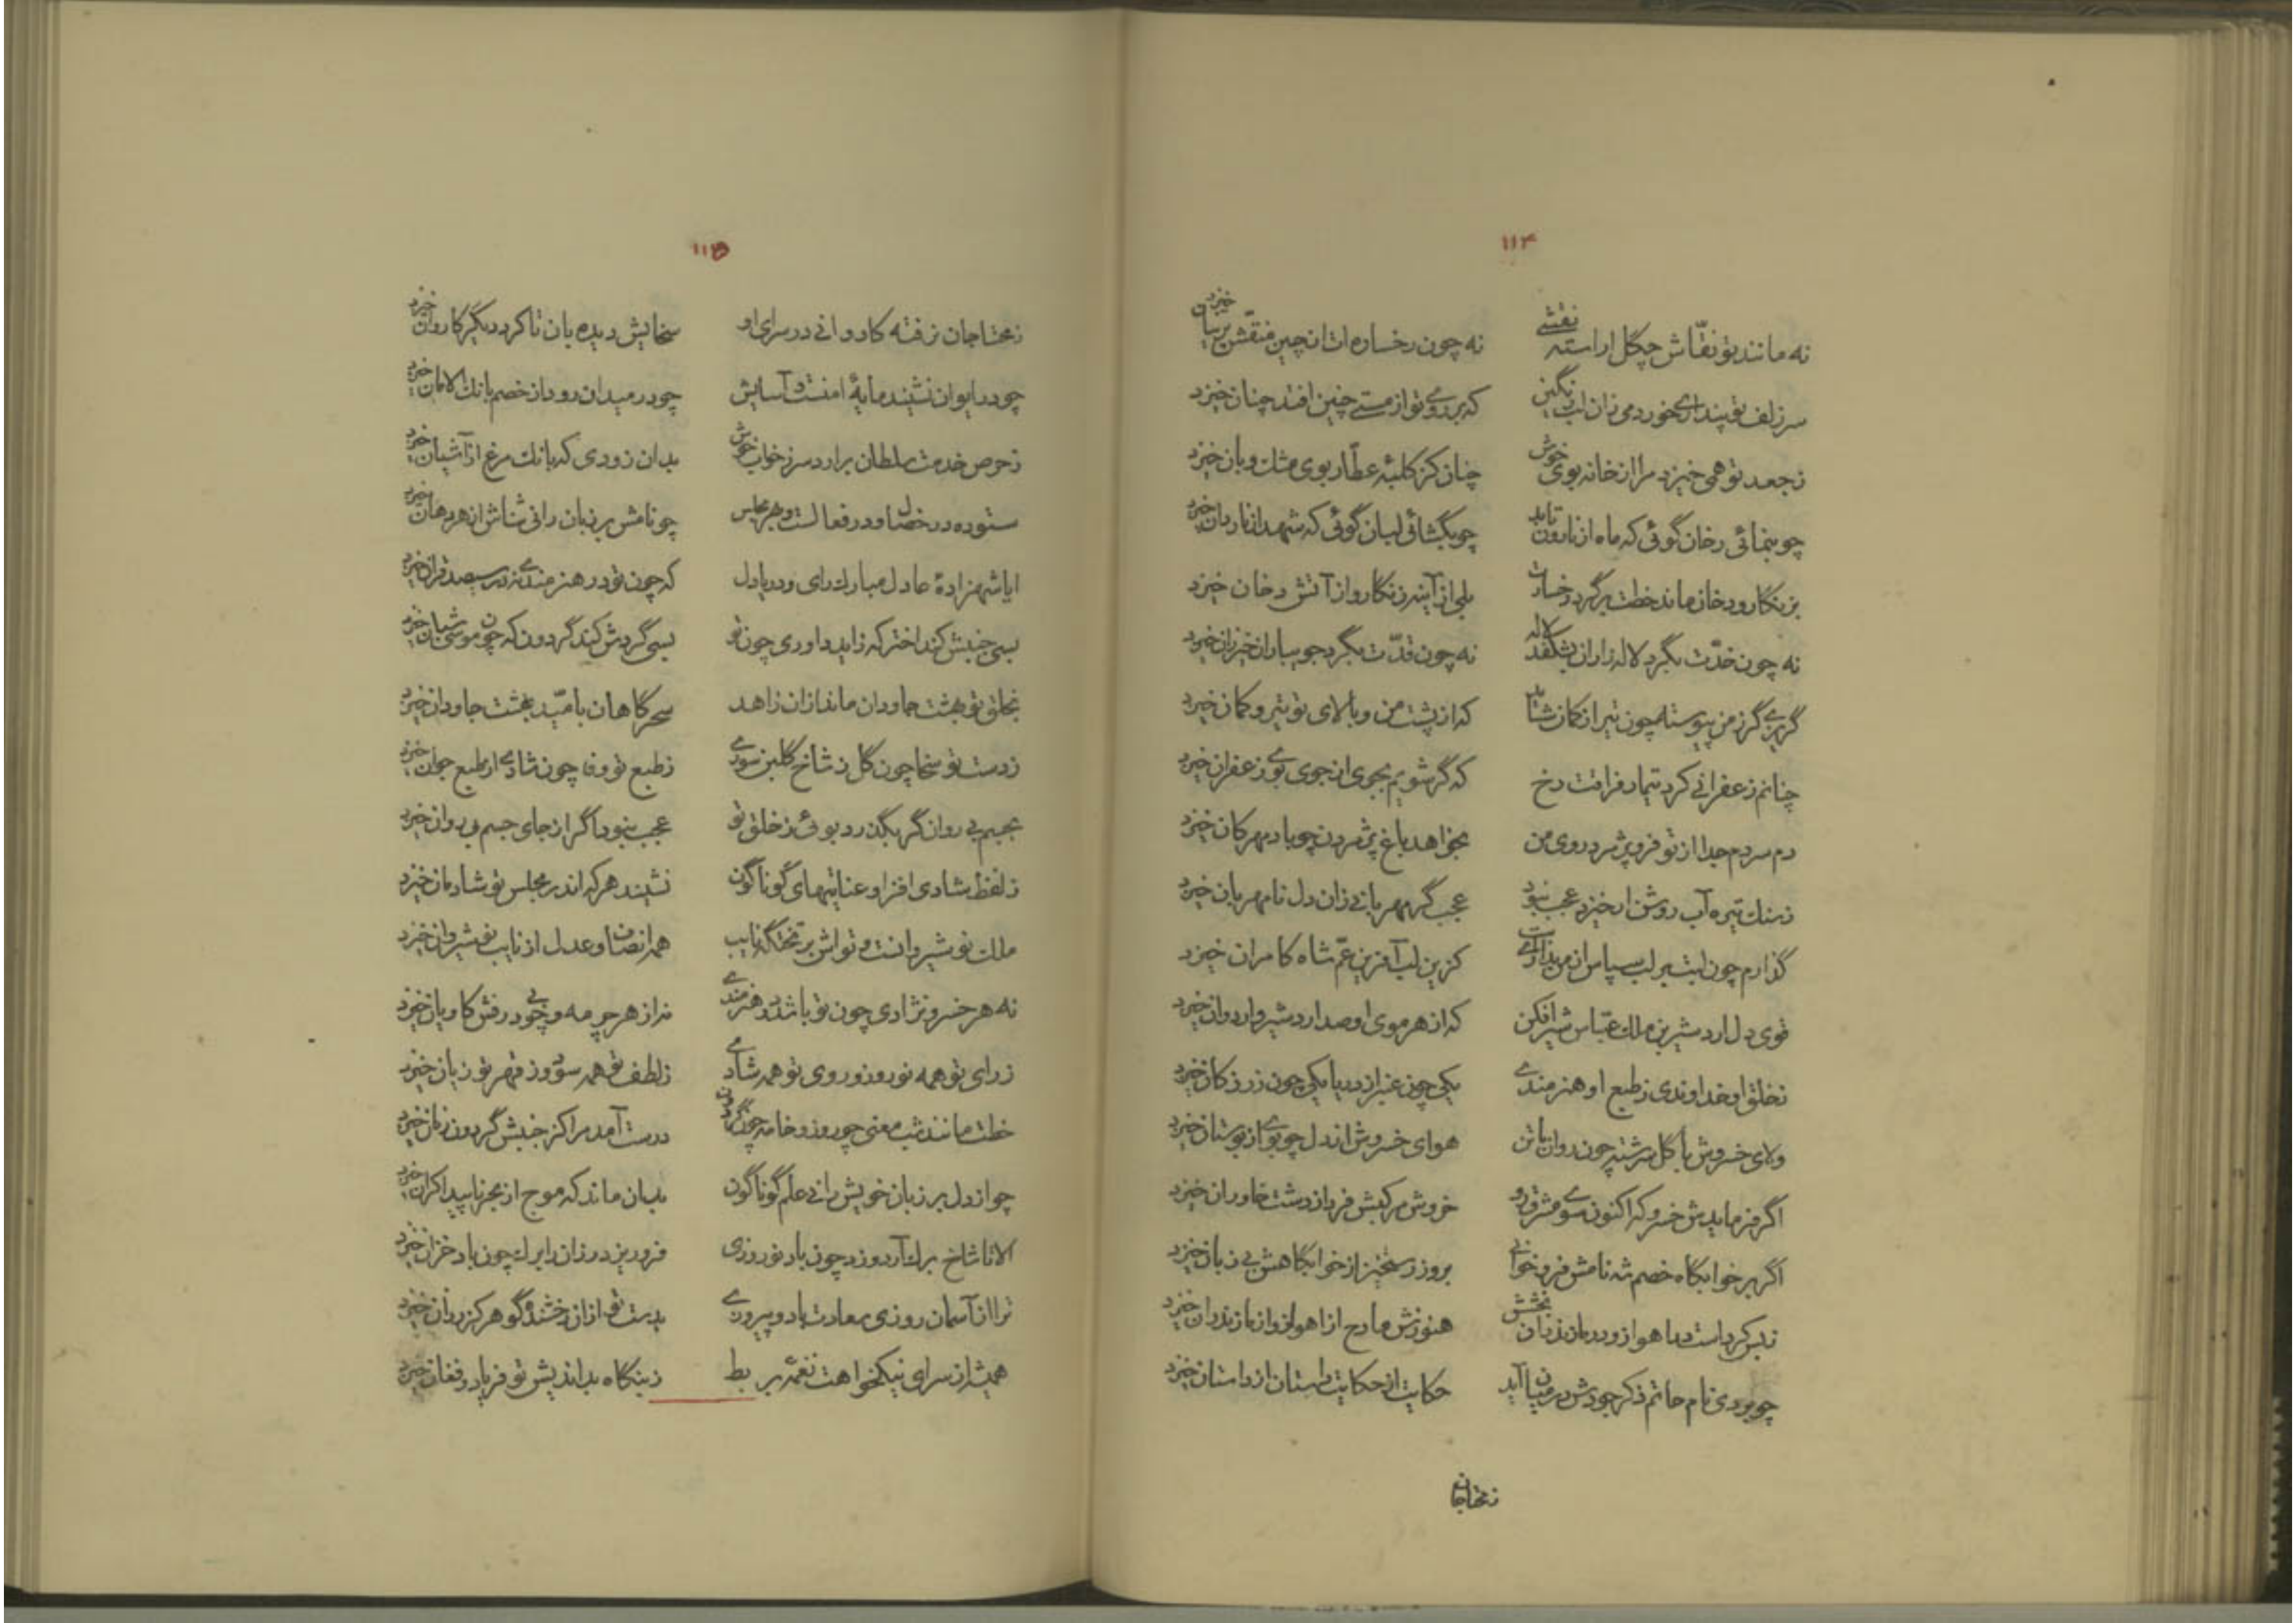 ۱۱۴
نه مانند تو نقّاش چگل اراسته نقشی نه چون رخساره ات از چین منقّش پرنیان خیزد
سر زلف تو پنداری خورد می زان لب رنگین که بر روی تو از مستی چنین افتد چنان خیزد
ز جعد تو همی خیزد مرا از خانه بوی خوش چنان کز کلبهٔ عطّار بوی مشک و بان خیزد
چو بنمائی رخان گوئی که ماه از نارون تابد چو بگشائی لبان گوئی که شهد از ناردان خیزد
بزنگار و دخان ماند خطت بر گرد رخسارت بلی از آینه زنگار و از آتش دخان خیزد
نه چون خدّت بگرد لاله زاران بشکفد لاله نه چون قدّت بگرد جویباران خیزران خیزد
گریزی گر ز من پیوسته همچون تیر از کمان شاید که از پشت من و بالای تو تیر و کمان خیزد
چنانم زعفرانی کرد تیمار فراقت رخ که گر شویم بجوی از جوی بوی زعفران خیزد
دم سردم جدا از تو فرو پژمرد روی من بخواهد باغ پژمردن چو باد مهرکان خیزد
ز سنک تیره آب روشن ار خیزد عجب نبود عجب گر مهربانی زان دل نامهربان خیزد
گذارم چون لبت بر لب سپاس از من پذیر ای کزین لب آفرین عمّ شاه کامران خیزد
قوی دل اردشیر بن ملک عبّاس شیر افکن که از هر موی او صد اردشیر و اردوان خیزد
ز خلق او خداوندی ز طبع او هنرمندی یکی چون عنبر از دریا یکی چون زر ز کان خیزد
ولای خسروش با گل سرشته چون روان با تن هوای خسروش از دل چو بوی از بوستان خیزد
اگر فرمایدش خسرو که اکنون سوی مشرق رو خروش مرکبش فردا ز دشت خاوران خیزد
اگر بر خوابگاه خصم شه نامش فرو خوانی بروز رستخیز از خوابگاهش بی زبان خیزد
ز بس کرد است در اهواز و در مازندران بخشش هنوزش مادح از اهواز و از مازندران خیزد
چو بودی نام حاتم ذکر جودش در میان آید حکایت از حکایت داستان از داستان خیزد
ز محتاجان
۱۱۵
ز محتاجان نرفته کاروانی در سرای او سخایش دیده بان تا کرد دیگر کاروان خیزد
چو در ایوان نشیند مایهٔ امنست و آسایش چو در میدان رود از خصم بانک الامان خیزد
ز حرص خدمت سلطان برارد سر ز خواب خوش بدان زودی که بانک مرغ از آشیان خیزد
ستوده در خصال و در فعالست و بهر مجلس چو نامش بر زبان رانی ثناش از هر دهان خیزد
ایا شهزادهٔ عادل مبارک رای و دریا دل که چون تو در هنرمندی نه در سیصد قران خیزد
بسی جنبش کند اختر که زاید داوری چون تو بسی گردش کند گردون که چون موسی شبان خیزد
بخلق تو بهشت جاودان ماند ازان زاهد سحرگاهان بامّید بهشت جاودان خیزد
ز دست تو سخا چون گل ز شاخ گلبن سوری ز طبع تو وفا چون شادی از طبع جوان خیزد
بجسم بی روان گر بگذرد بوئی ز خلق تو عجب نبود اگر از جای جسم بی روان خیزد
ز لفظ شادی افزا و عنایتهای گوناگون نشیند هر که اندر مجلس تو شادمان خیزد
ملک نوشیروانست و تو اش بر تختگه نایب همه انصاف و عدل از نایب نوشیروان خیزد
نه هر خسرو نژادی چون تو باشد در هنرمندی نه از هر چرمه و چوبی درفش کاویان خیزد
ز رای تو همه نور و ز روی تو همه شادی ز لطف تو همه سود و ز قهر تو زیان خیزد
خطت مانند شب معنی چو روز و خامه چون گردون درست آمد مرا کز جنبش گردون زمان خیزد
چو از دل بر زبان خویش رانی علم گوناگون بدان ماند که موج از بحر ناپیدا کران خیزد
الا تا شاخ برک آرد وزد چون باد نوروزی فرو ریزد رزان را برک چون باد خزان خیزد
ترا از آسمان روزی سعادت باد و پیروزی بدست تو ازان رخشنده گوهر کز روان خیزد
همیشه از سرای نیکخواهت نغمهٔ بربط ز بنگاه بداندیش تو فریاد و فغان خیزد